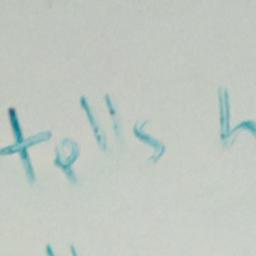 tells h